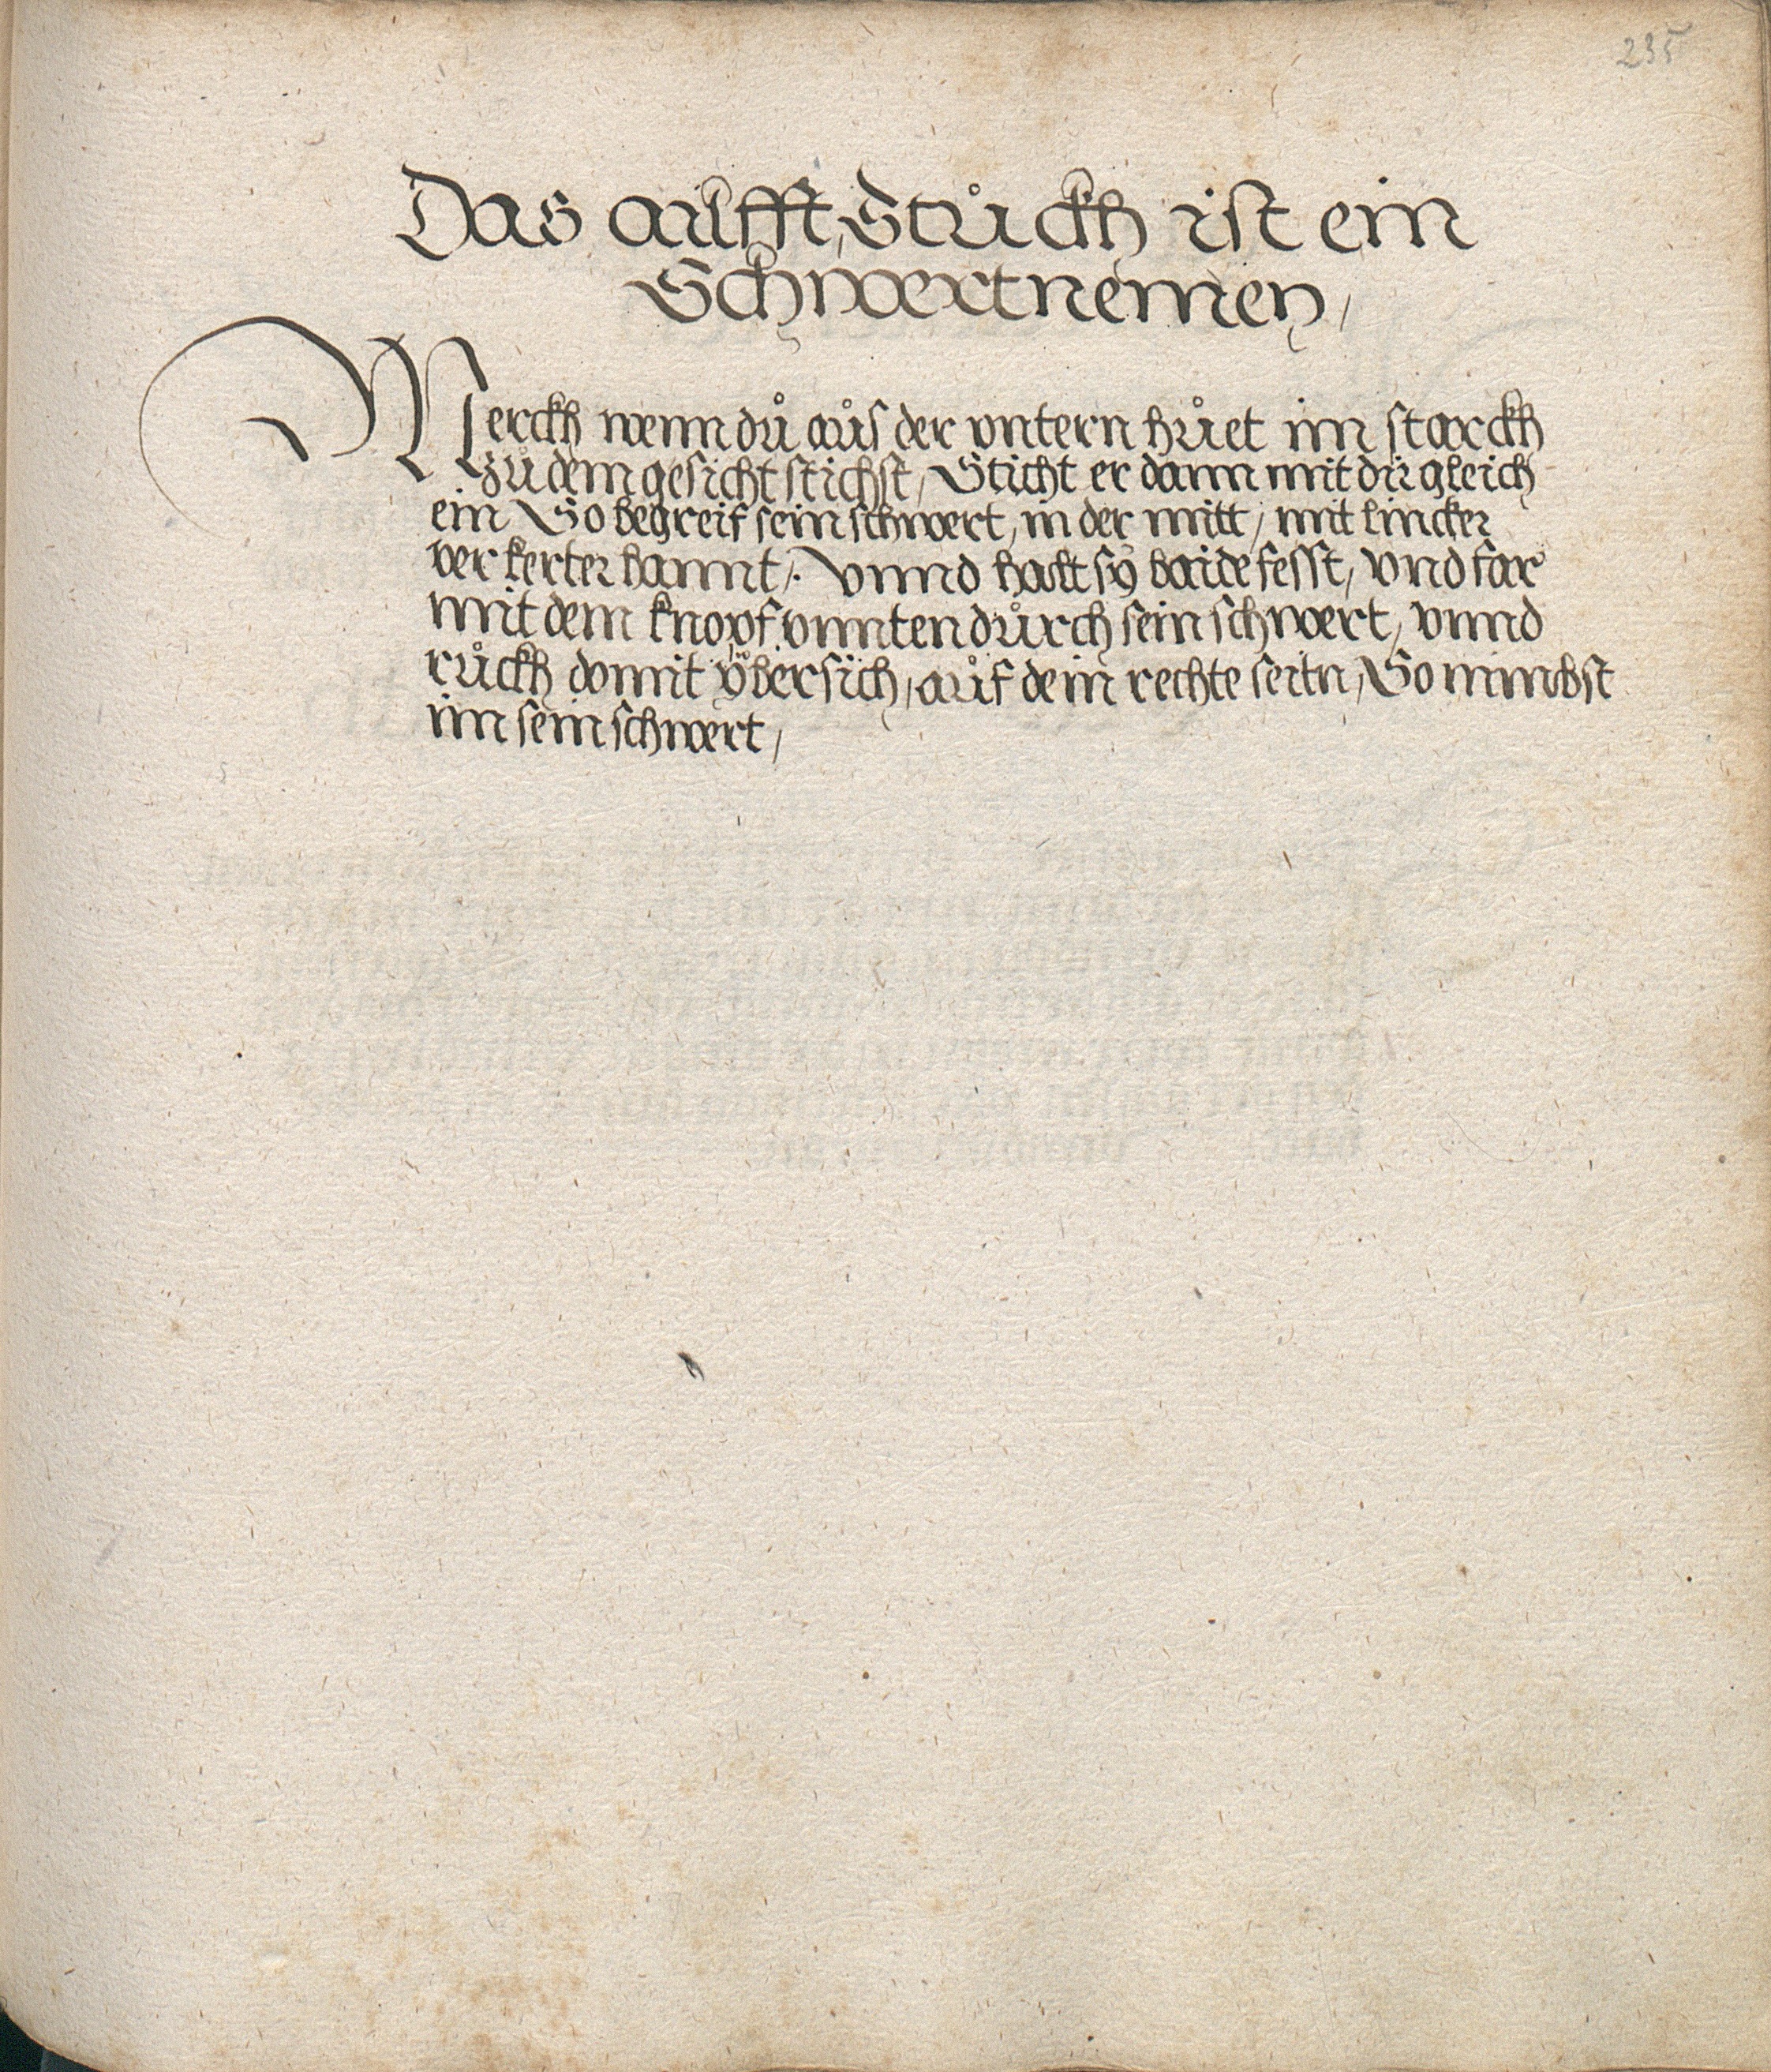 235
Das ailfft, Stůckh ist ein
Schwertnemen,
Merckh wenn dů aůs der vntern hůet im starckh
zů dem gesicht stichst, Sticht er dann mit dir gleich
ein So begreif sein schwert, in der mitt, mit lincker
verkerter hannt,. Vnnd halt sÿ baide fesst, vnd far
mit dem knopf vnnten důrch sein schwert, vnnd
růckh domit ÿbersich, aůf dein rechte seitn, So nimbst
im sein schwert,